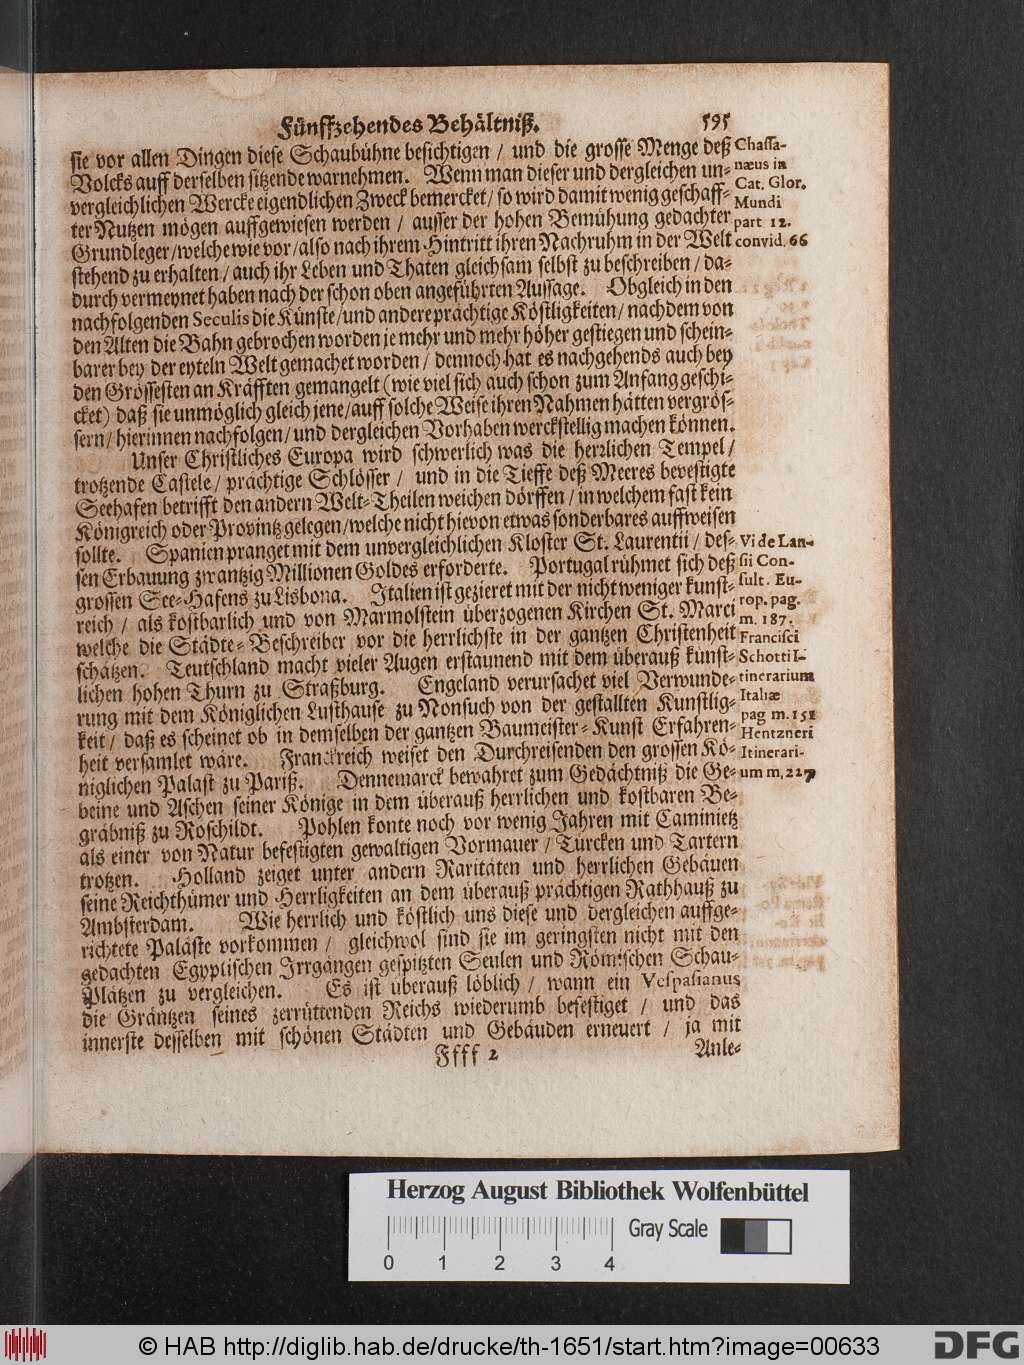 Fünffzehendes Behältniß.
595
sie vor allen Dingen diese Schaubühne besichtigen / und die grosse Menge deß
Volcks auff derselben sitzende warnehmen. Wenn man dieser und dergleichen un-
vergleichlichen Wercke eigendlichen Zweck bemercket / so wird damit wenig geschaff-
ter Nutzen mögen auffgewiesen werden / ausser der hohen Bemühung gedachter
Grundleger / welche wie vor / also nach ihrem Hintritt ihren Nachruhm in der Welt
stehend zu erhalten / auch ihr Leben und Thaten gleichsam selbst zu beschreiben / da-
durch vermeynet haben nach der schon oben angeführten Aussage. Obgleich in den
nachfolgenden Seculis die Künste / und andere prächtige Köstligkeiten / nachdem von
den Alten die Bahn gebrochen worden je mehr und mehr höher gestiegen und schein-
barer bey der eyteln Welt gemachet worden / dennoch hat es nachgehends auch bey
den Grössesten an Kräfften gemangelt (wie viel sich auch schon zum Anfang geschi-
cket) daß sie unmöglich gleich jene / auff solche Weise ihren Nahmen hätten vergrös-
sern / hierinnen nachfolgen / und dergleichen Vorhaben werckstellig machen können.
Unser Christliches Europa wird schwerlich was die herzlichen Tempel /
trotzende Castele / prächtige Schlösser / und in die Tieffe deß Meeres bevestigte
Seehafen betrifft den andern Welt-Theilen weichen dörffen / in welchem fast kein
Königreich oder Provintz gelegen / welche nicht hievon etwas sonderbares auffweisen
sollte. Spanien pranget mit dem unvergleichlichen Kloster St. Laurentii / des-
sen Erbauung zwantzig Millionen Goldes erforderte. Portugal rühmet sich deß
grossen See-Hafens zu Lisbona. Italien ist gezieret mit der nicht weniger kunst-
reich / als kostbarlich und von Marmolstein überzogenen Kirchen St. Marci
welche die Städte-Beschreiber vor die herrlichste in der gantzen Christenheit
schätzen. Teutschland macht vieler Augen erstaunend mit dem überauß künst-
lichen hohen Thurn zu Straßburg. Engeland verursachet viel Verwunde-
rung mit dem Königlichen Lusthause zu Nonsuch von der gestallten Kunstlig-
keit / daß es scheinet ob in demselben der gantzen Baumeister-Kunst Erfahren-
heit versamlet wäre. Franckreich weiset den Durchreisenden den grossen Kö-
niglichen Palast zu Pariß. Dennemarck bewahret zum Gedächtniß die Ge-
beine und Aschen seiner Könige in dem überauß herrlichen und kostbaren Be-
gräbniß zu Roschildt. Pohlen konte noch vor wenig Jahren mit Caminietz
als einer von Natur befestigten gewaltigen Vormauer / Türcken und Tartern
trotzen. Holland zeiget unter andern Raritäten und herrlichen Gebäuen
seine Reichthümer und Herrligkeiten an dem überauß prächtigen Rathhauß zu
Ambsterdam. Wie herrlich und köstlich uns diese und dergleichen auffge-
richtete Paläste vorkommen / gleichwol sind sie im geringsten nicht mit den
gedachten Egyptischen Irrgängen gespitzten Seulen und Römischen Schau-
Plätzen zu vergleichen. Es ist überauß löblich / wann ein Vespasianus
die Gräntzen seines zerrüttenden Reichs wiederumb befestiget / und das
innerste desselben mit schönen Städten und Gebäuden erneuert / ja mit
Ffff 2
Anle-
Chassa-
næus in
Cat. Glor.
Mundi
part 12.
convid. 66
Vide Lan-
sii Con-
sult. Eu-
rop. pag.
m. 187.
Francisci
Schotti I-
tinerarium
Italiæ
pag m. 151
Hentzneri
Itinerari-
um m, 227
Herzog August Bibliothek Wolfenbüttel
Gray Scale
0 1 2 3 4
© HAB http://diglib.hab.de/drucke/th-1651/start.htm?image=00633
DFG